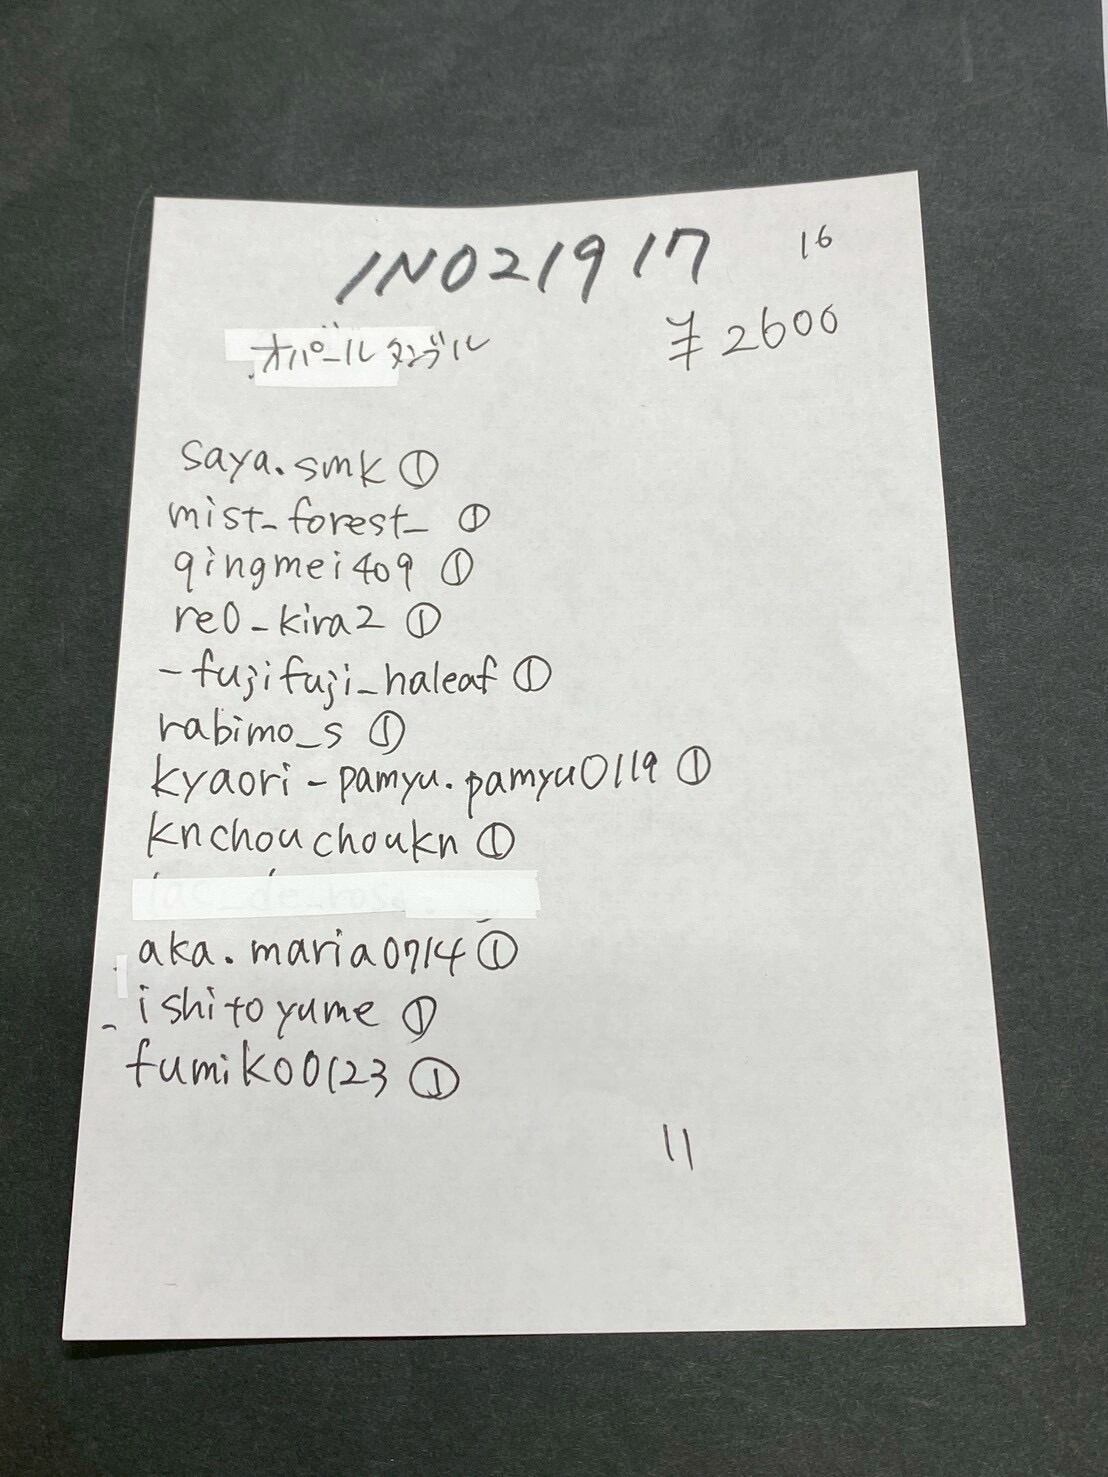 IN021917 16
オパールタンブル ¥2600
saya.smk ①
mist_forest_ ①
qingmei409 ①
re0_kira2 ①
-fujifuji_haleaf ①
rabimo_s ①
kyaori-pamyu.pamyu0119 ①
knchouchoukn ①
aka.maria0714 ①
ishitoyume ①
fumiko0123 ①
11